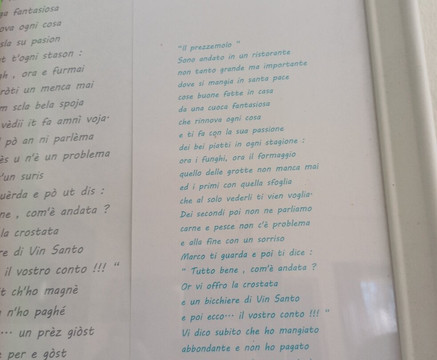 fantasiosa
ogni cosa
su pasion
t'ogni stason :
, ora e furmai
un menca mai
scla bela spoja
vèdii it fa amnì voja-
pò an ni parlèma
u n'è un problema
'un suris
e pò ut dis :
, com'è andata ?
la crostata
di Vin Santo
il vostro conto !!! "
ch'ho magnè
n'ho paghè
... un prèz giòst
per e gòst
"Il prezzemolo "
Sono andato in un ristorante
non tanto grande ma importante
dove si mangia in santa pace
cose buone fatte in casa
da una cuoca fantasiosa
che rinnova ogni cosa
e ti fa con la sua passione
dei bei piatti in ogni stagione :
ora i funghi, ora il formaggio
quello delle grotte non manca mai
ed i primi con quella sfoglia
che al solo vederli ti vien voglia-
Dei secondi poi non ne parliamo
carne e pesce non c'è problema
e alla fine con un sorriso
Marco ti guarda e poi ti dice :
" Tutto bene , com'è andata ?
Or vi offro la crostata
e un bicchiere di Vin Santo
e poi ecco... il vostro conto !!! "
Vi dico subito che ho mangiato
abbondante e non ho pagato